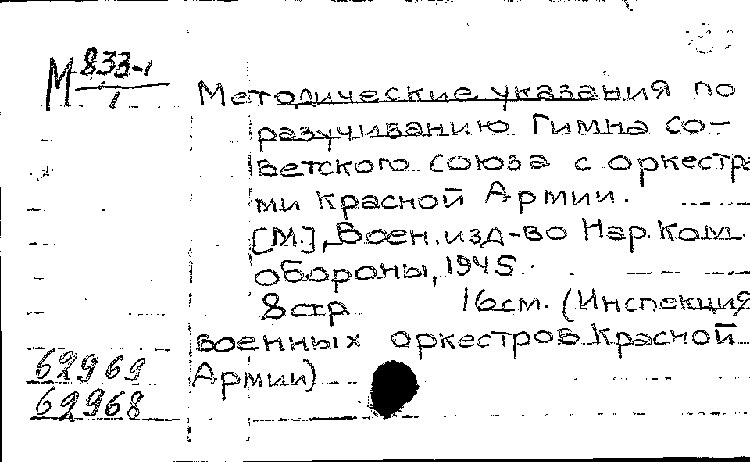 М 833-1
1
Методические указания по
разучиванию Гимна со-
ветского союза с оркестра
ми Красной Армии.
[М.], Воен. изд-во Нар. Ком.
обороны, 1945.
8 стр 16 см. (Инспекция
военных оркестров Красной
Армии)
62969
62968